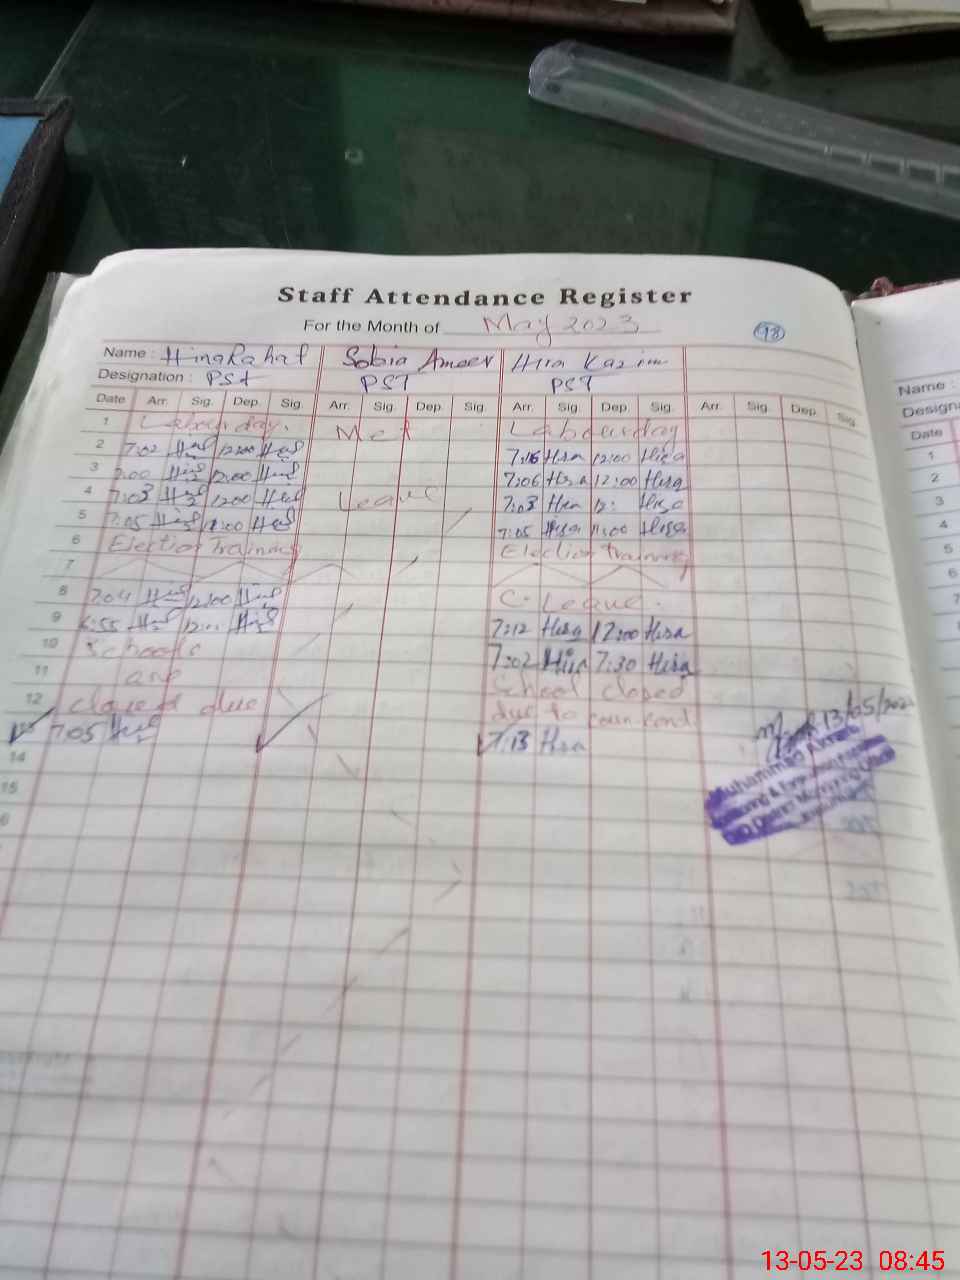 Staff Attendance Register
For the Month of May 2023
98
Name : Hina Rahat Sobia Ameer Hira Kazim
Designation : PSt PST PST
Date Arr. Sig. Dep. Sig. Arr. Sig. Dep. Sig. Arr. Sig. Dep. Sig. Arr. Sig. Dep. Sig.
1 Labour day. Labourday
2 7:02 12:00 7:16 Hira 12:00 Hira
3 7:00 12:00 7:06 Hira 12:00 Hira
4 7:03 1200 Leave 7:03 Hira 12: Hira
5 7:05 11:00 7:05 Hira 11:00 Hira
6 Election Training Election Training
7
8 7:04 12:00 C. Leave.
9 6:55 12:00 7:12 Hira 12:00 Hira
10 Schools 7:02 Hira 7:30 Hira
11 are School closed
12 closed due due to
13 7:05 7:13 Hira
13/05/202
Muhammad Akram
14
15
6
Name :
Designa
Date
1
2
3
4
5
6
7
8
9
10
11
12
13-05-23 08:45